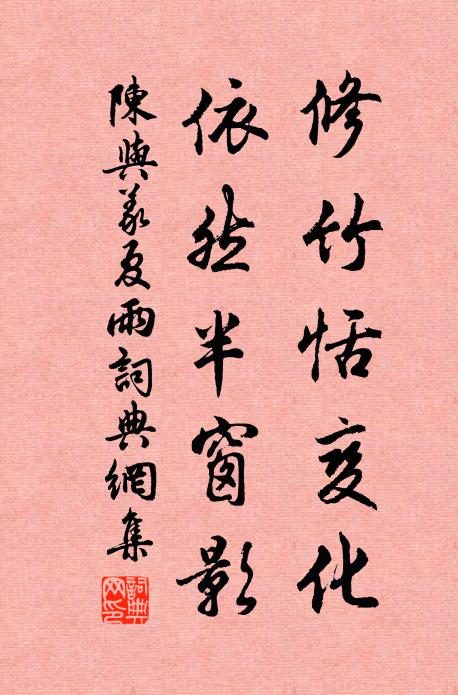 修竹恬變化
依然半窗影
陳與義夏雨詞典網集
詞典網印